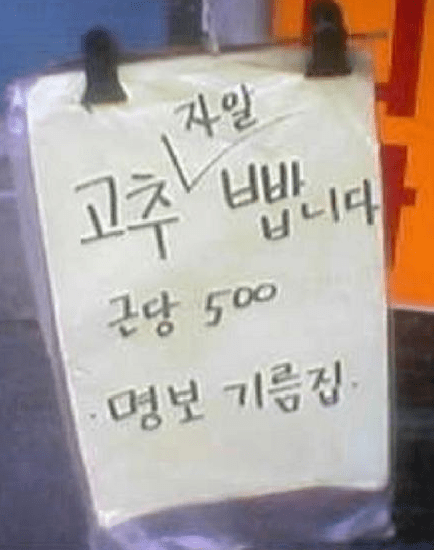 자알
고추 빱니다
근당 500
·명보 기름집·